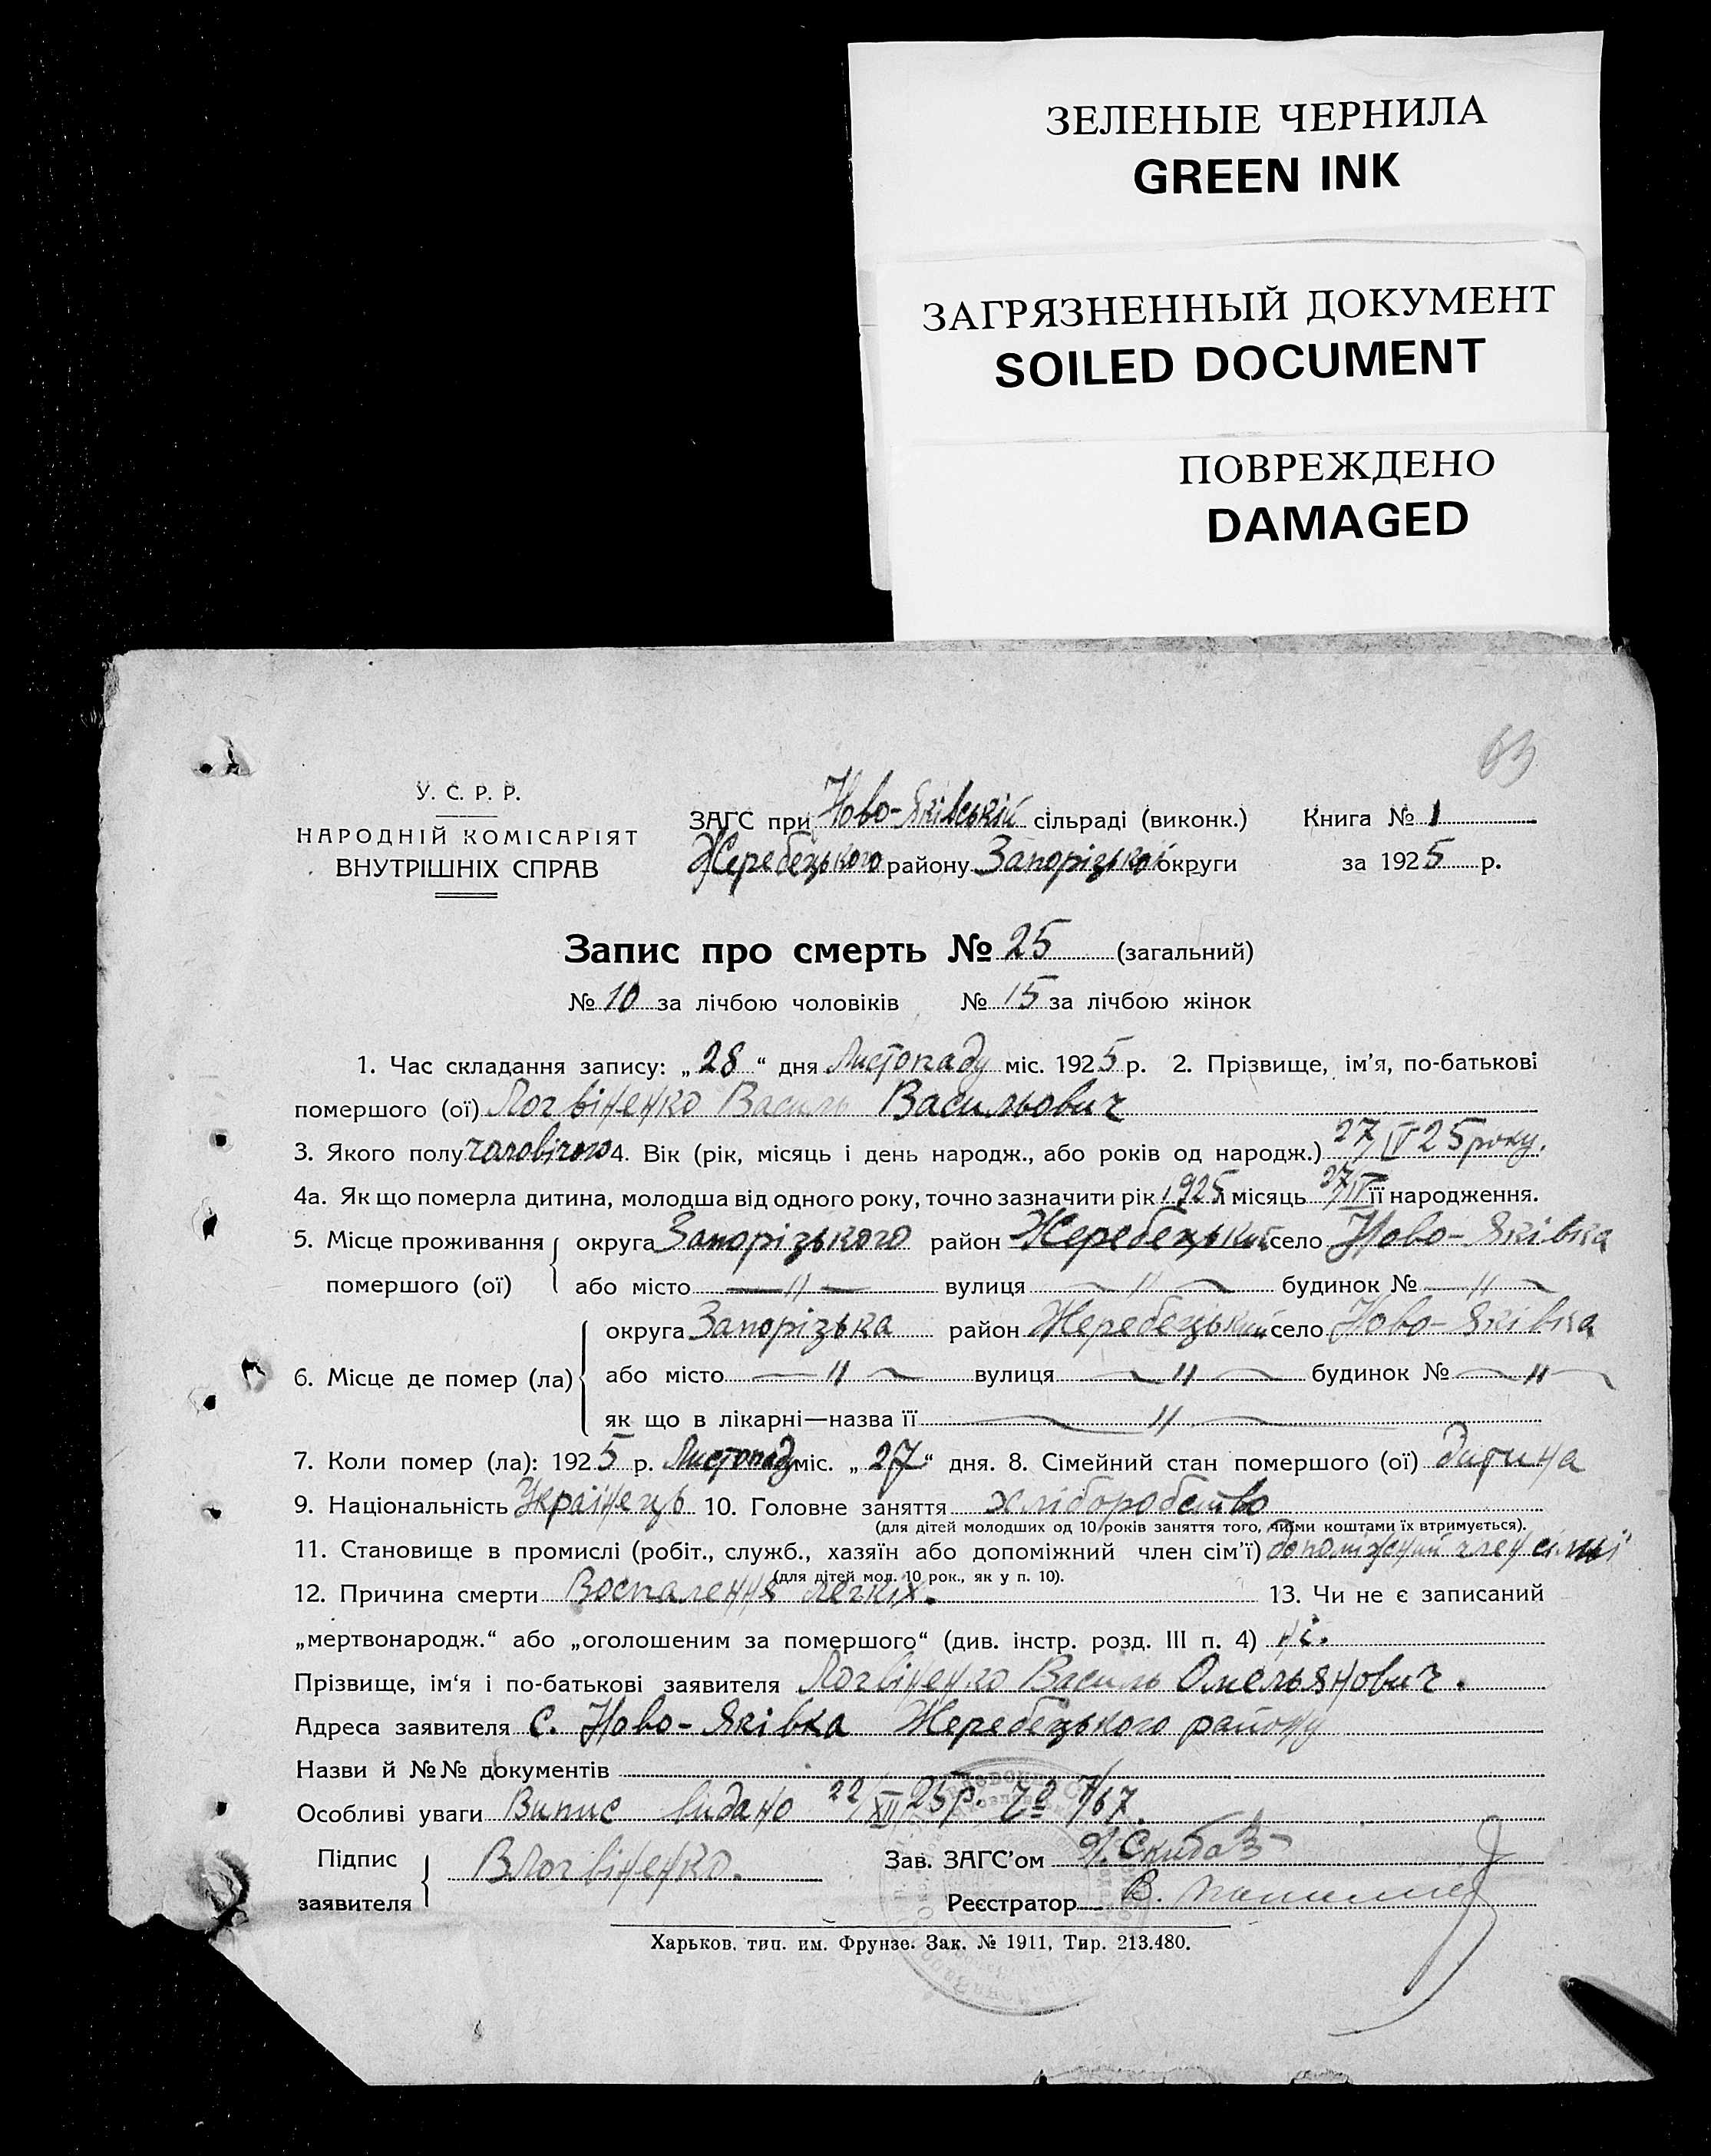 ЗЕЛЕНЫЕ ЧЕРНИЛА
GREEN INK
ЗАГРЯЗНЕННЫЙ ДОКУМЕНТ
SOILED DOCUMENT
ПОВРЕЖДЕНО
DAMAGED
63
У. С. Р. Р.
НАРОДНІЙ КОМІСАРІЯТ
ВНУТРІШНІХ СПРАВ
ЗАГС при Ново-Яківській сільраді (виконк.) Книга № 1
Жеребецького району Запорізької округи за 1925 р.
Запис про смерть № 25 (загальний)
№ 10 за лічбою чоловіків № 15 за лічбою жінок
1. Час складання запису: „28“ дня Листопаду міс. 1925 р. 2. Прізвище, ім’я, по-батькові
помершого (ої) Логвіненко Василь Васильович
3. Якого полу чоловічого 4. Вік (рік, місяць і день народж., або років од народж.) 27/IV 25 року.
4а. Як що померла дитина, молодша від одного року, точно зазначити рік 1925 місяць 27/IV її народження.
5. Місце проживання помершого (ої) округа Запорізького район Жеребецький село Ново-Яківка
або місто —〃— вулиця —〃— будинок № —〃—
6. Місце де помер (ла) округа Запорізька район Жеребецький село Ново-Яківка
або місто —〃— вулиця —〃— будинок № —〃—
як що в лікарні—назва її —〃—
7. Коли помер (ла): 1925 р. Листопад міс. „27“ дня. 8. Сімейний стан помершого (ої) дитина
9. Національність Українець 10. Головне заняття хліборобство
(для дітей молодших од 10 років заняття того, чиїми коштами їх втримується).
11. Становище в промислі (робіт., служб., хазяїн або допоміжний член сім’ї) допоміжний член сімї
(для дітей мол. 10 рок., як у п. 10).
12. Причина смерти Воспалення легкіх. 13. Чи не є записаний
„мертвонародж.“ або „оголошеним за помершого“ (див. інстр. розд. III п. 4) ні.
Прізвище, ім‘я і по-батькові заявителя Логвіненко Василь Омельянович.
Адреса заявителя с. Ново-Яківка Жеребецького району
Назви й №№ документів
Особливі уваги Випис видано 22/XII 25р.
Підпис заявителя ВЛогвіненко. Зав. ЗАГС’ом Скиба
Реєстратор В.
Харьков. тип. им. Фрунзе. Зак. № 1911, Тир. 213.480.